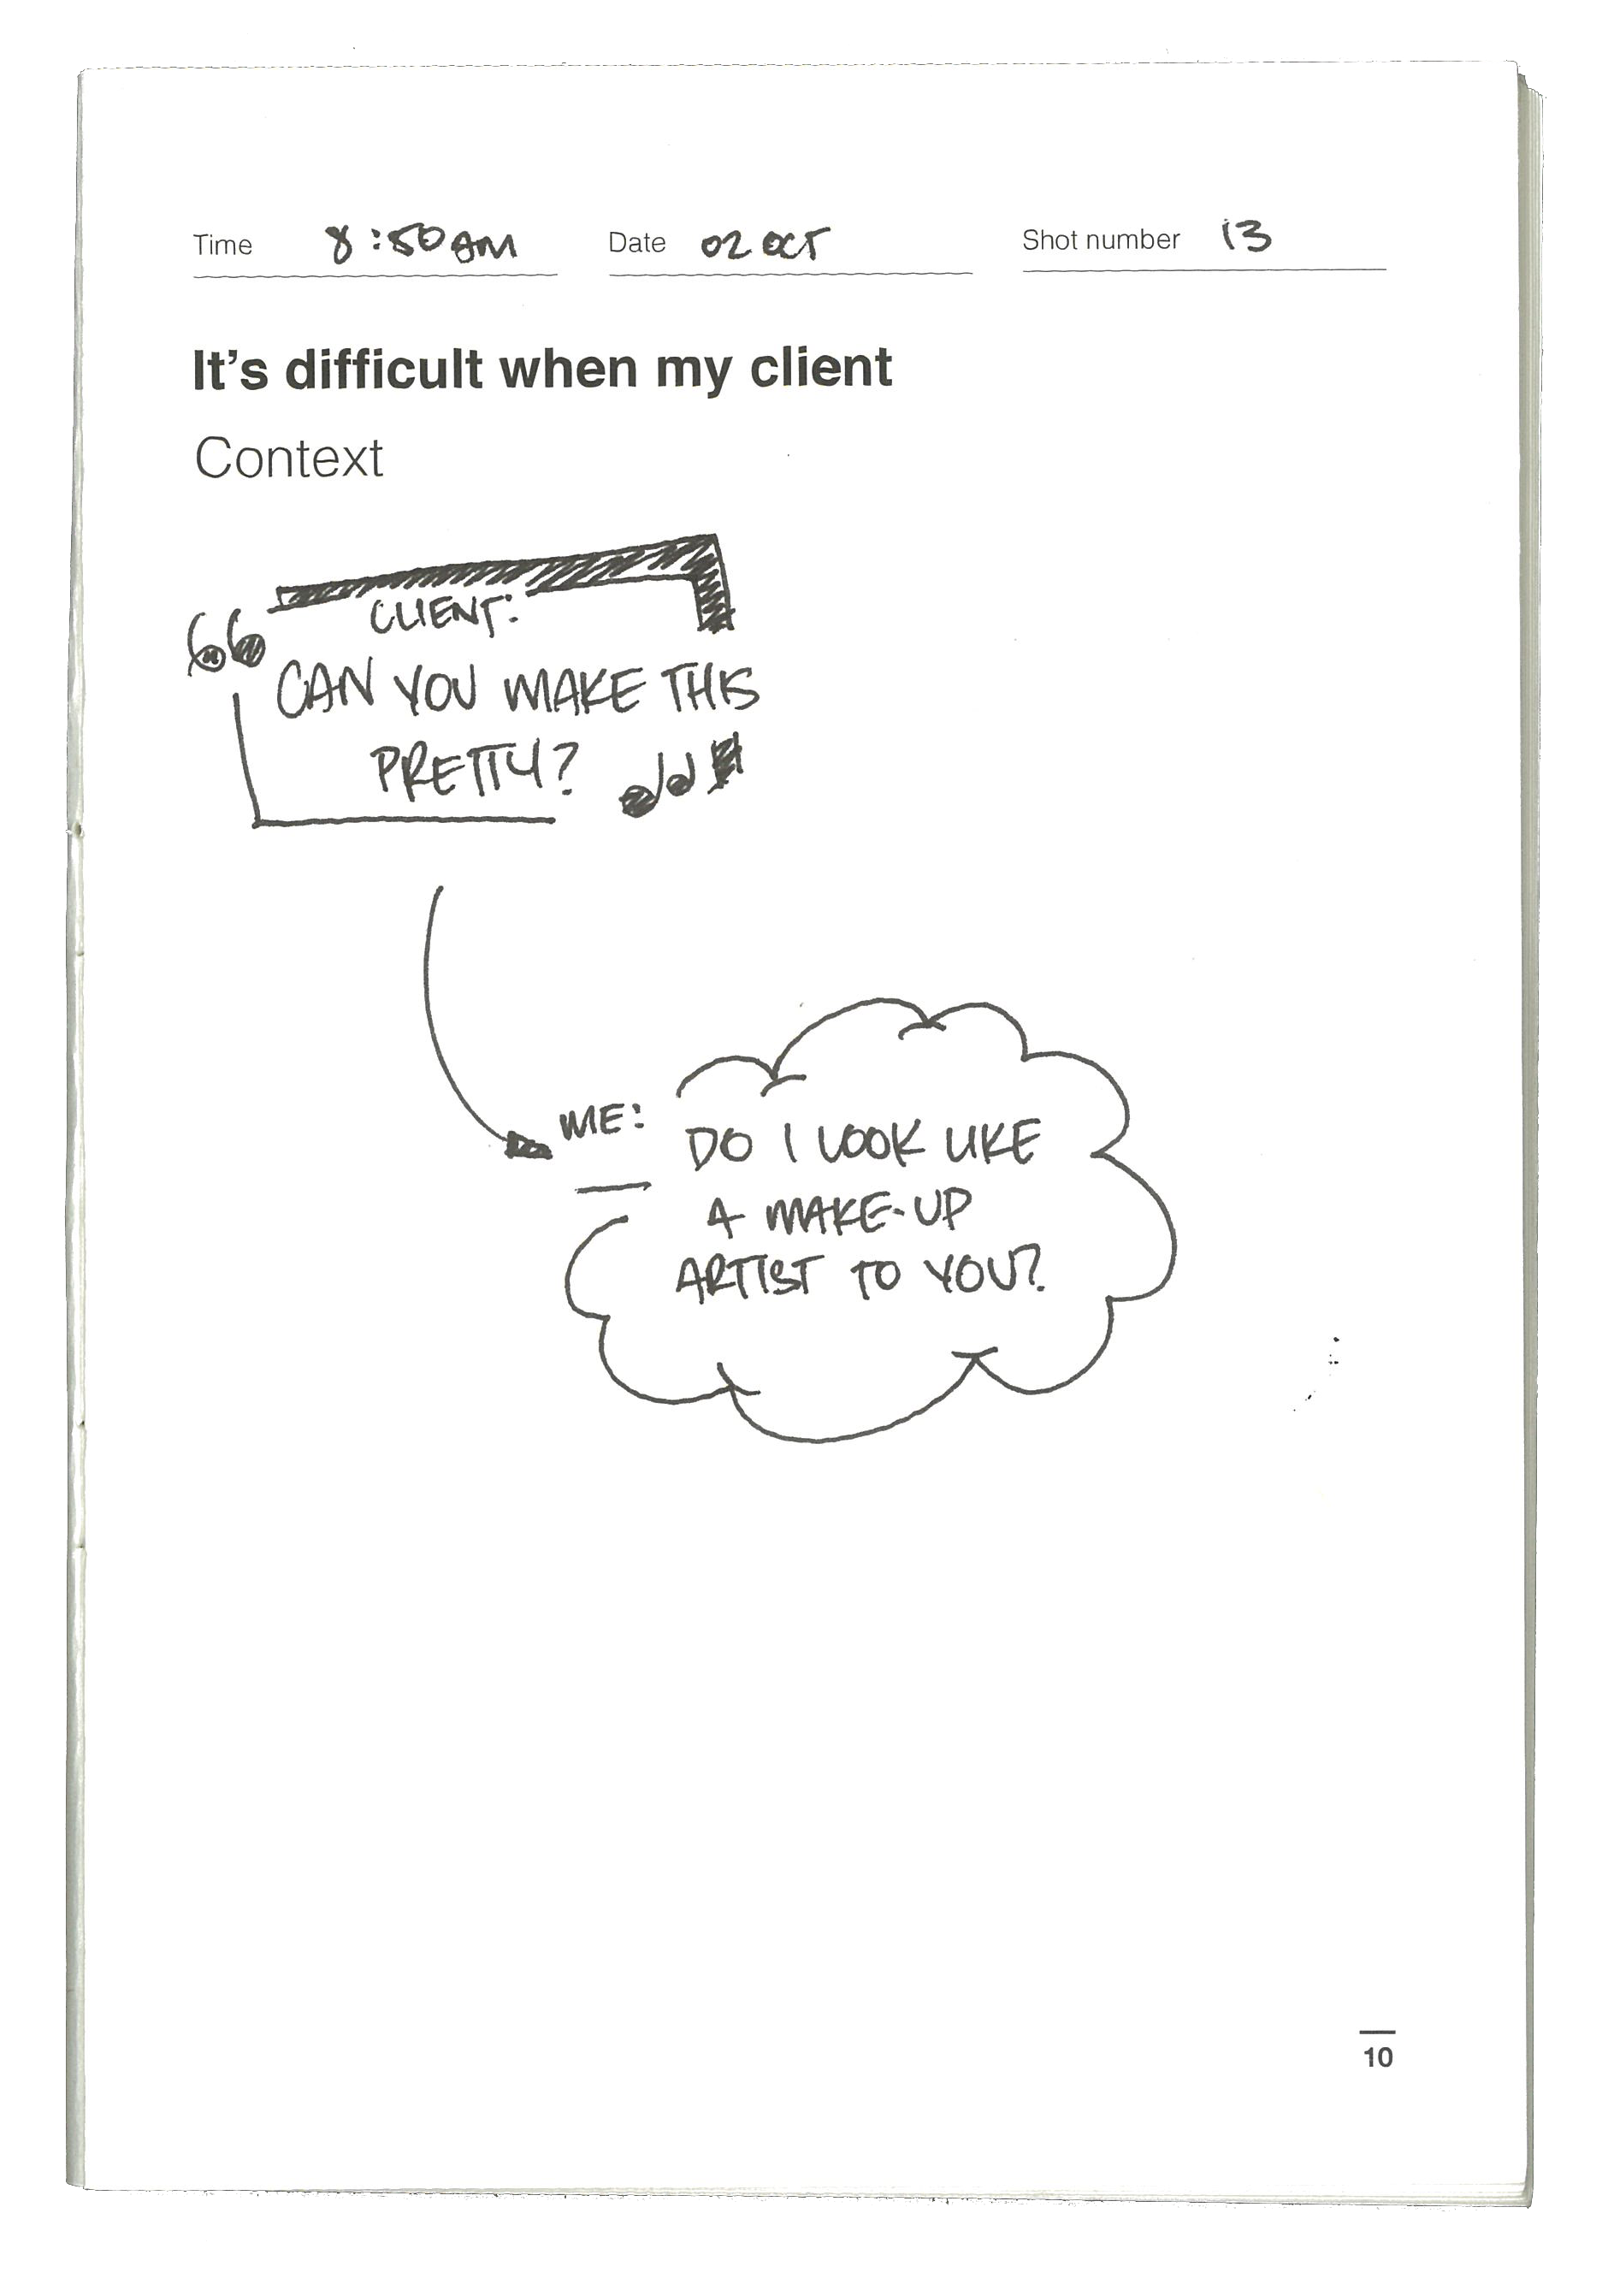 Time 8:50AM Date 02 OCT Shot number 13
It's difficult when my client
Context
CLIENT:
CAN YOU MAKE THIS
PRETTY?
ME:
DO I LOOK LIKE
A MAKE-UP
ARTIST TO YOU?
10